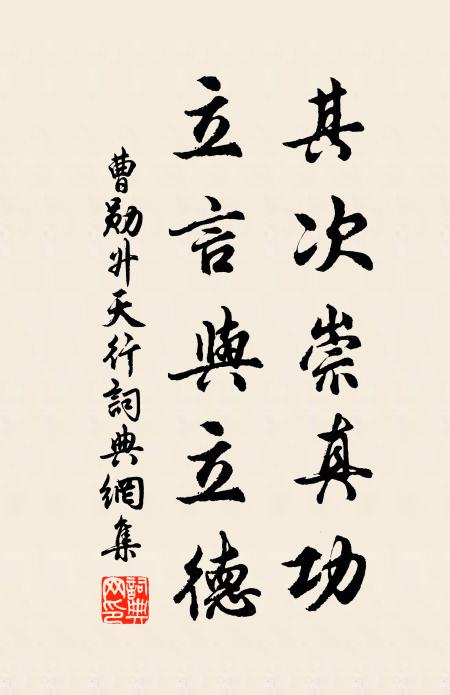 其次崇真功
立言與立德
曹勛升天行詞典網集
詞典網印